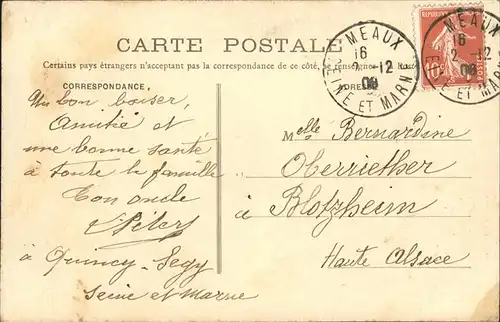 CARTE POSTALE
Certains pays étrangers n'acceptent pas la correspondance de ce côté, se
CORRESPONDANCE,
Un bon baiser,
Amitié et
une bonne santé
à toute la famille
Ton oncle
à Quincy-Segy
Seine et Marne
MEAUX
16
2-12
SEINE ET MARNE
MEAUX
16
2-12
ET MARNE
10
POSTES
Melle Bernardine
Oberriether
à Blotzheim
Haute Alsace